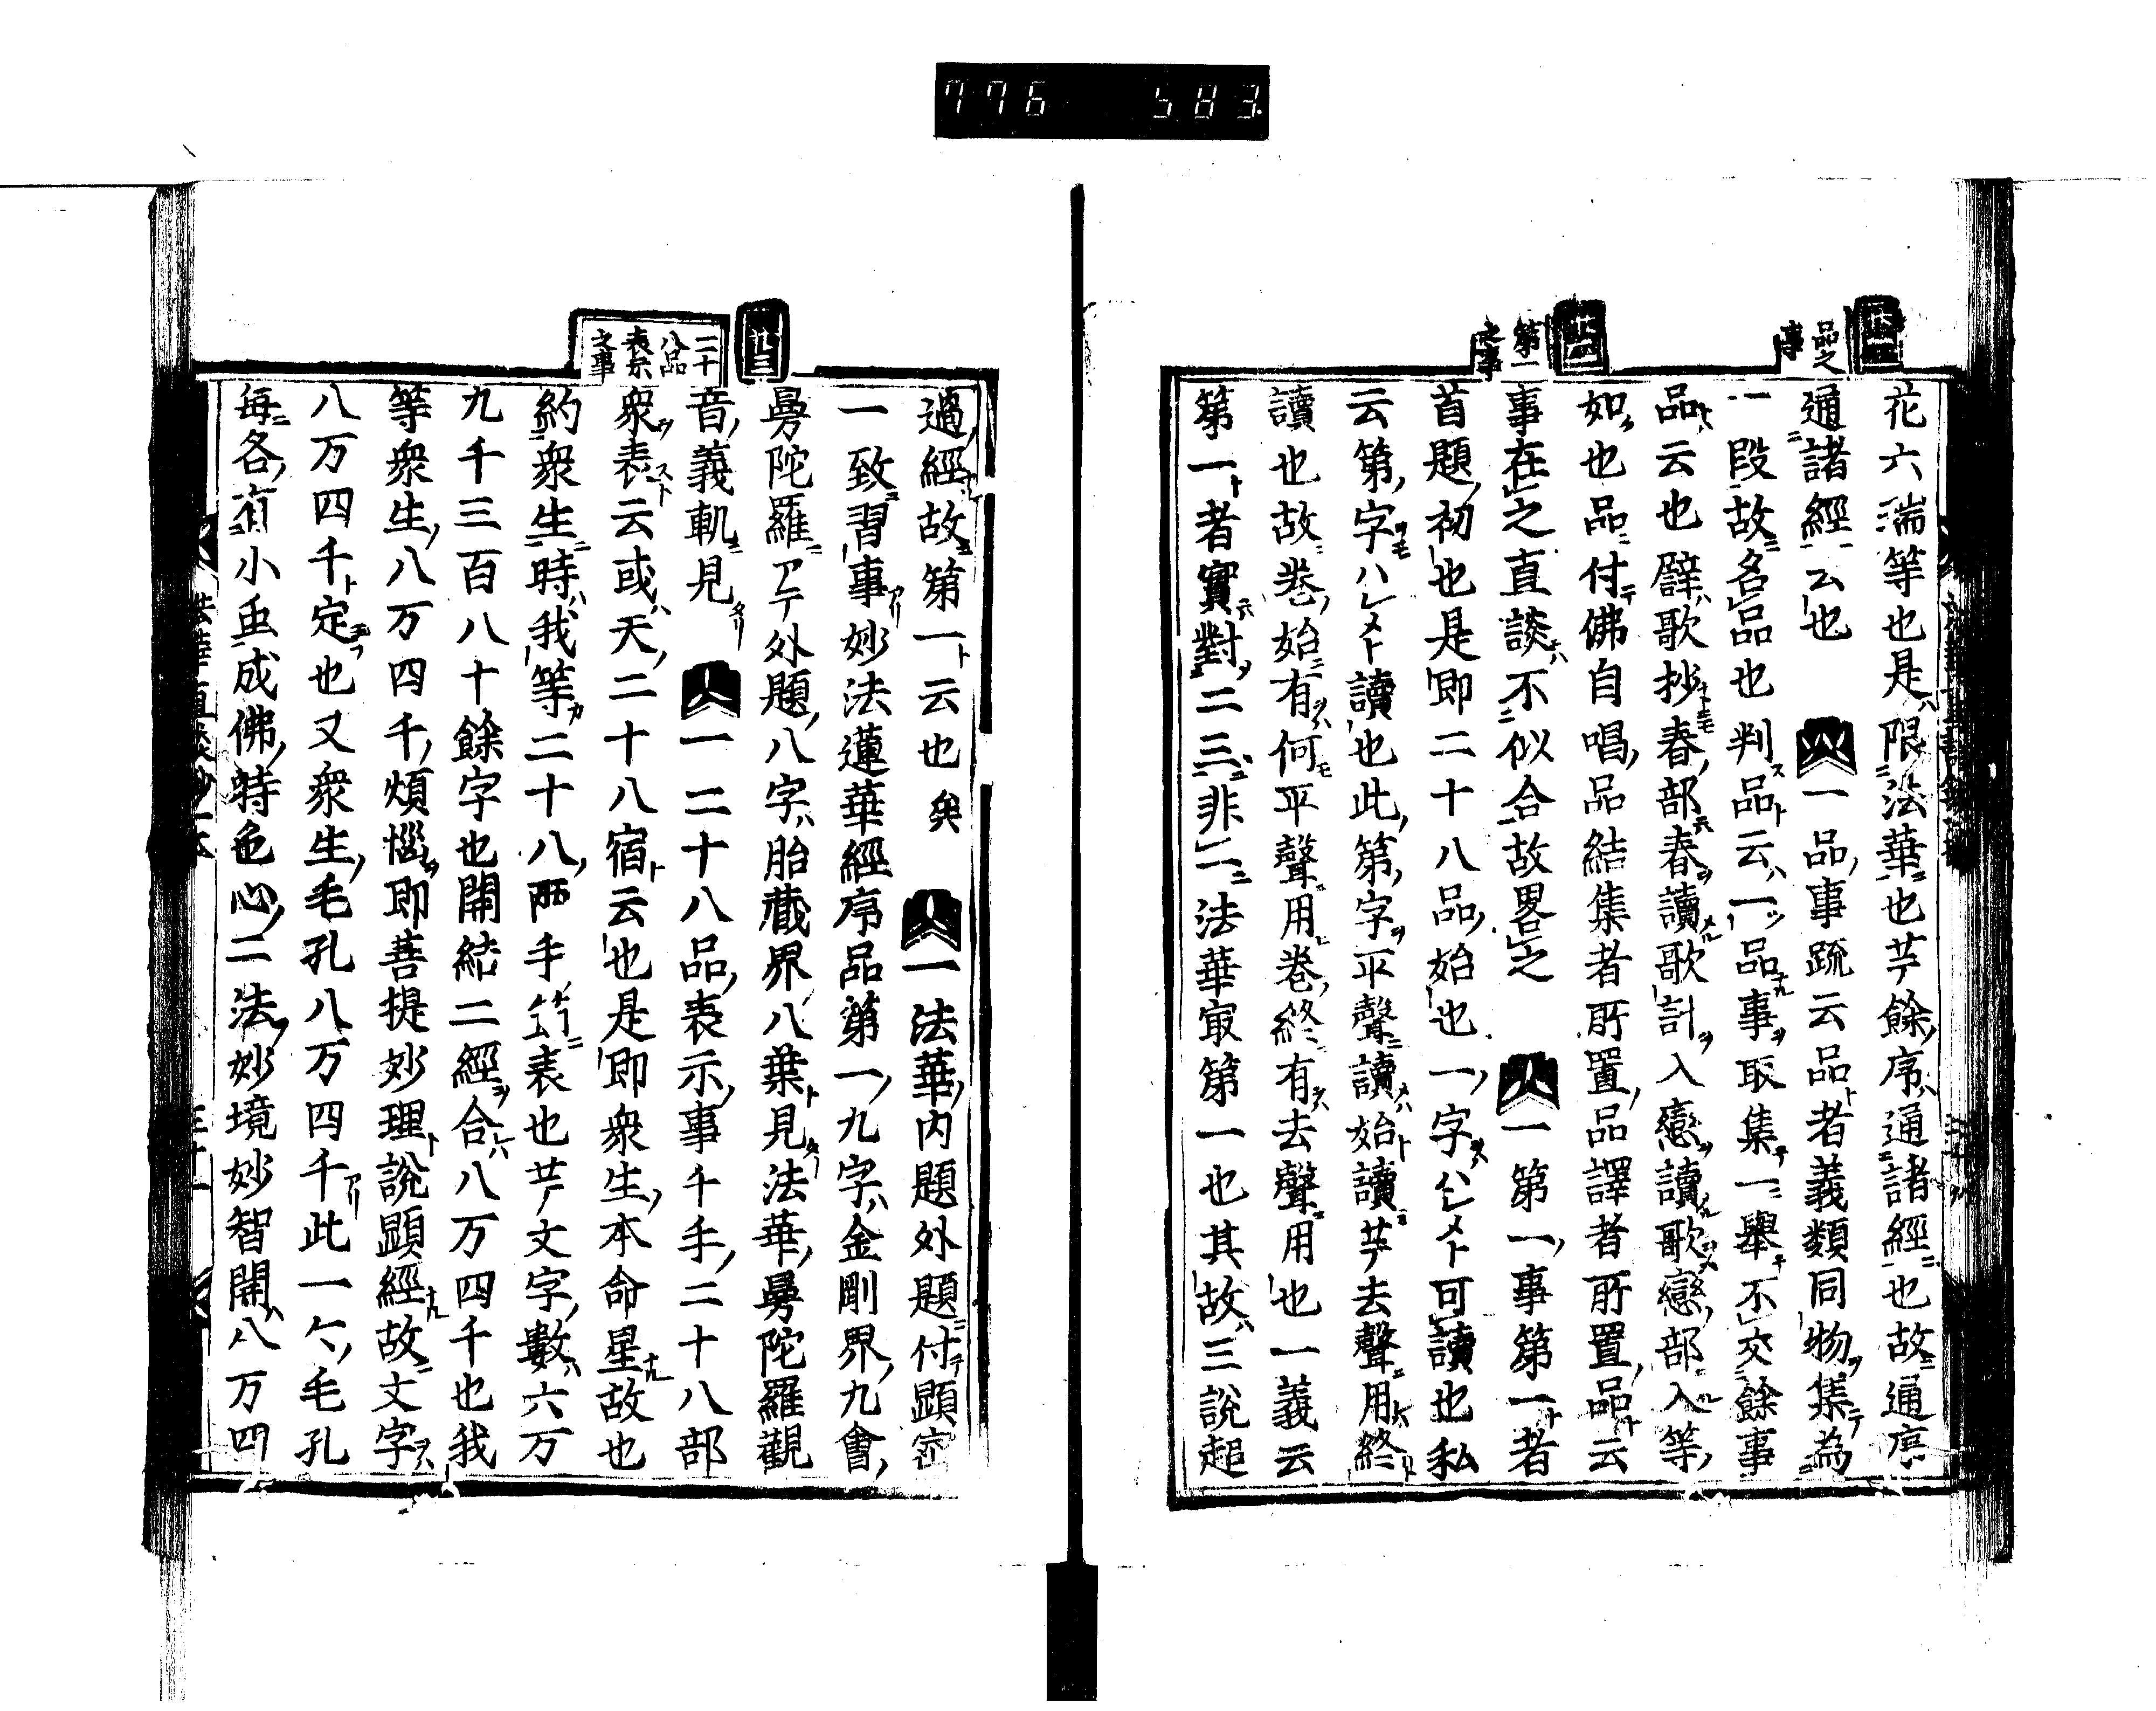 776 583.
品之
事
第一
之事
花六瑞等也是限法華也サテ餘序通諸經也故通序
通諸經云也 一品事疏云品者義類同物集為
一段故名品也判品云一品事取集一擧不交餘事
品云也譬歌抄春部春讀歌計入戀讀歌戀部入等
如也品付佛自唱品結集者所置品譯者所置品云
事在之直談不似合故畧之 一第一事第一者
首題初也是即二十八品始也一字ハシメト可讀也私
云第字ハシメト讀也此第字平聲讀始讀サテ去聲用終
讀也故巻始有何平聲用巻終有去聲用也一義云
第一者實對二三非二法華㝡第一也其故三說超
廿三
二十
八品
表示
之事
過經故第一云也矣 一法華内題外題付顕密
一致習事妙法蓮華經序品第一九字金剛界九會
曼陀羅アテ外題八字胎藏界八葉見法華曼陀羅觀
音義軌見 一二十八品表示事千手二十八部
衆表云或天二十八宿云也是即衆生本命星故也
約衆生時我等二十八兩手表也サテ文字數六万
九千三百八十餘字也開結二經合八万四千也我
等衆生八万四千煩惱即菩提妙理說顕經故文字
八万四千定也又衆生毛孔八万四千此一々毛孔
毎各有小虫成佛時色心二法妙境妙智開八万四